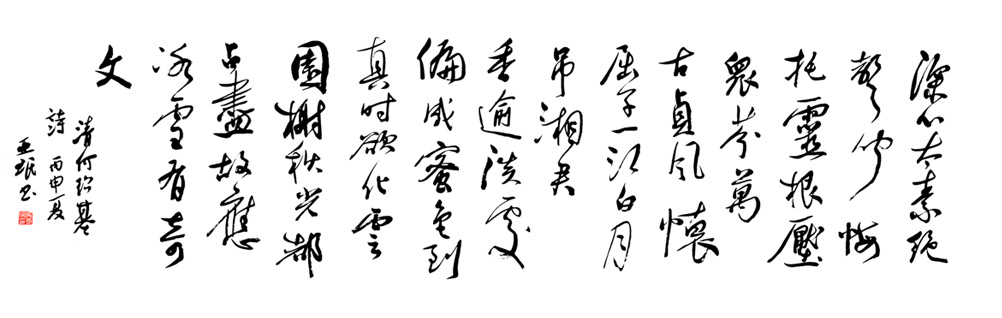 深心太素絕
聲聞悔
托靈根壓
衆芬萬
古貞風懷
屈子一江白月
吊湘君
香逾淡處
偏成蜜色到
真时欲化雲
園榭秋光都
占盡故應
冰雪有奇
文
清何紹基
詩 丙申夏